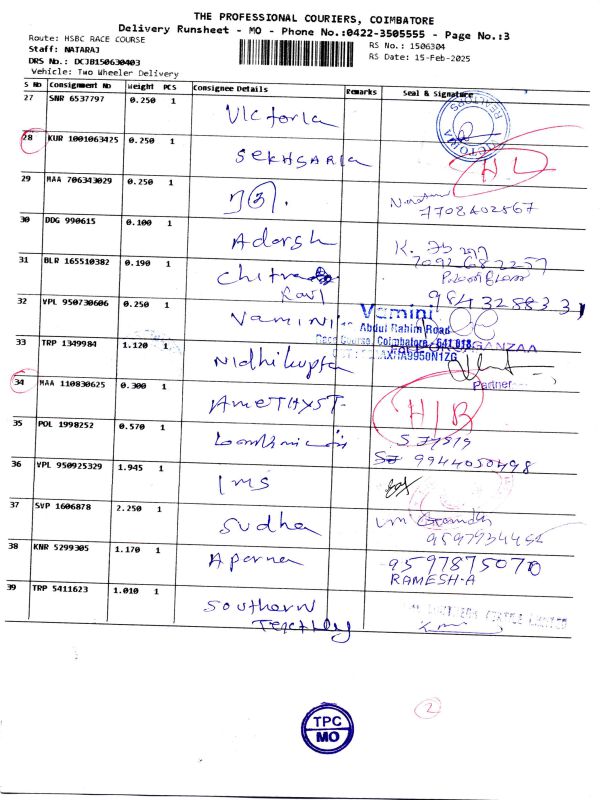 THE PROFESSIONAL COURIERS, COIMBATORE
Delivery Runsheet - MO - Phone No.:0422-3505555 - Page No.:3
Route: HSBC RACE COURSE
RS No.: 1506304
Staff: NATARAJ
RS Date: 15-Feb-2025
DRS No.: DCJB150630403
Vehicle: Two Wheeler Delivery
S No Consignment No Weight PCS Consignee Details Remarks Seal & Signature
27 SNR 6537797 0.250 1 Victoria
REALTORS
28 KUR 1001063425 0.250 1 SEKHSARIA
29 MAA 706343029 0.250 1
7708402867
30 DDG 990615 0.100 1 Adarsh
31 BLR 165510382 0.190 1 Chitra
Ravi
32 VPL 950730606 0.250 1 VAMINI
Vamini
Abdul Rahim Road
Race Course, Coimbatore - 641 018.
33 TRP 1349984 1.120 1 Nidhi Gupta
Partner
34 MAA 110830625 0.300 1 AMETHYST
35 POL 1998252 0.570 1
9944050498
36 VPL 950925329 1.945 1 IMS
37 SVP 1606878 2.250 1 Sudha
38 KNR 5299305 1.170 1 Aparna
9597875070
RAMESH.A
39 TRP 5411623 1.010 1 Southern
2
TPC
MO